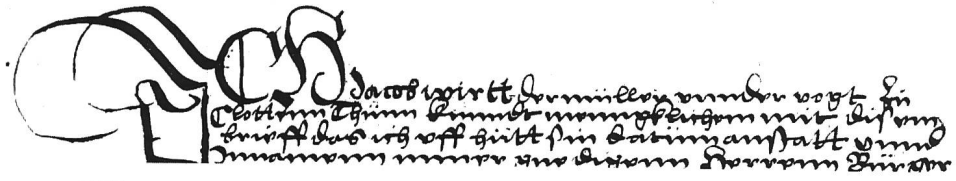 ICH Jacob wirtt der müller vnnder vogt zů
Clottenn Thůnn kunndt menngklichem mit disem
brieff das ich vff hütt sin datum anstatt vnnd
Innamenn miner gnedigenn Herrenn Bürger